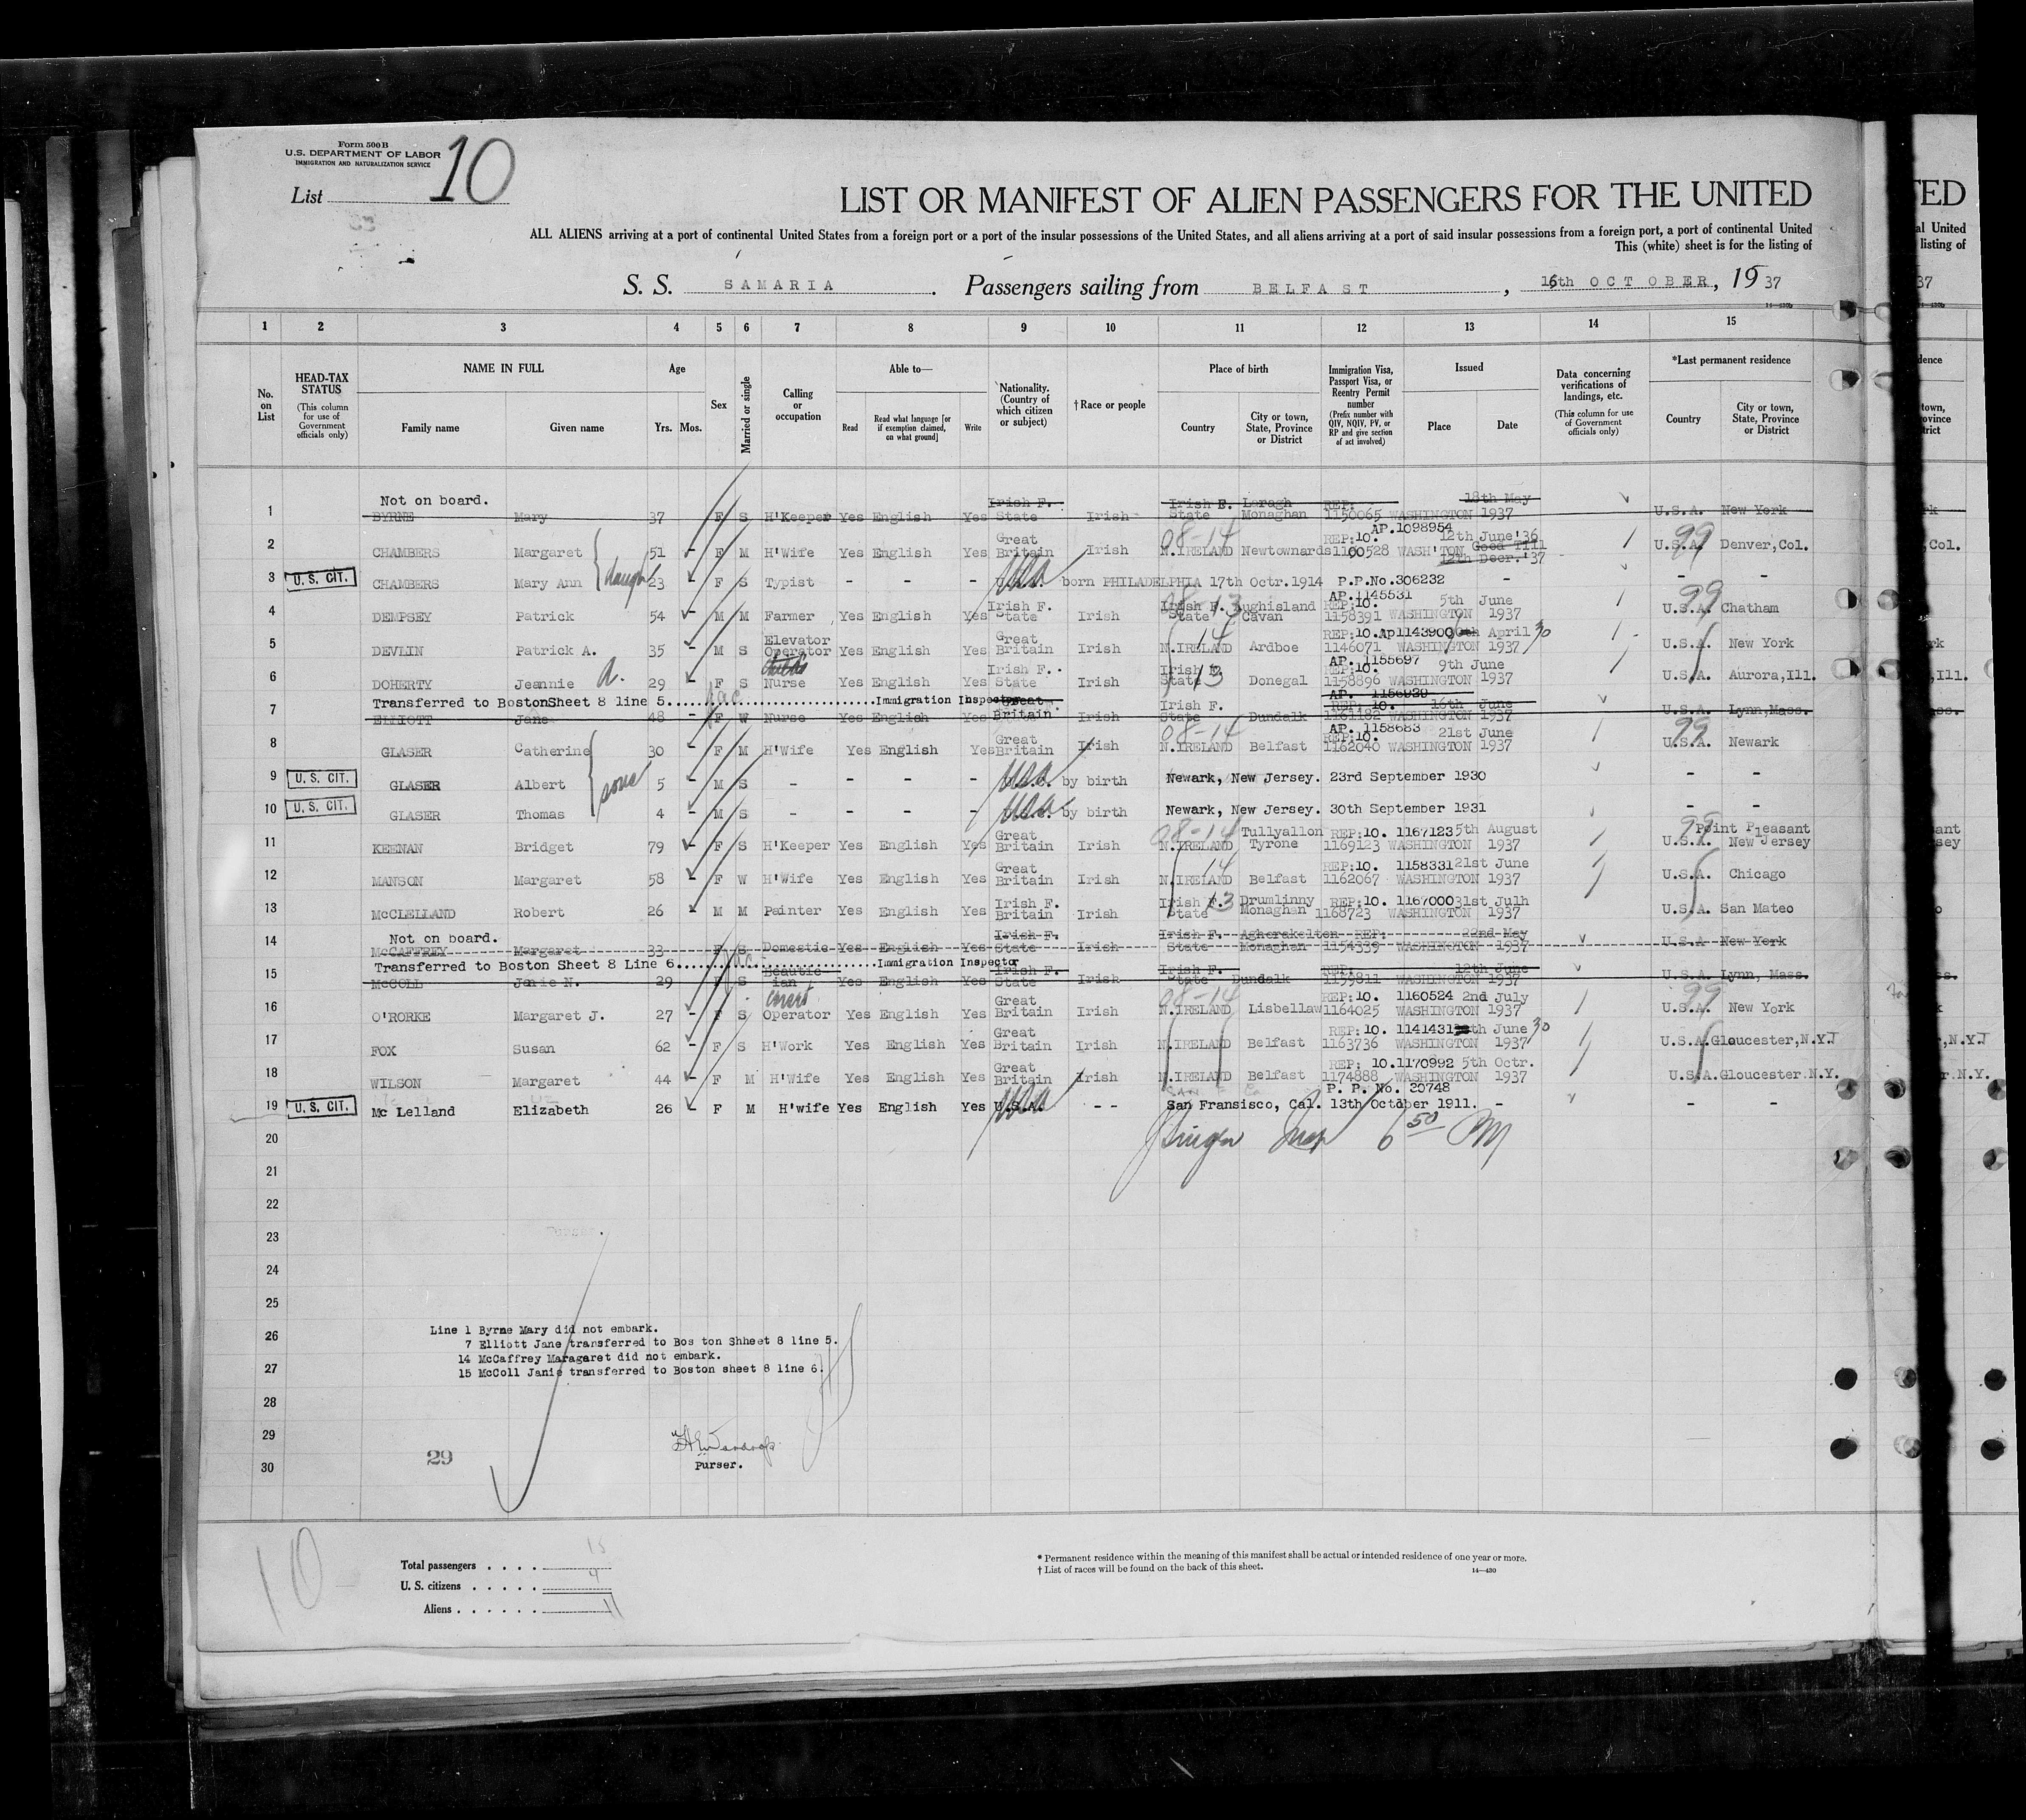 Form 500 B
U.S. DEPARTMENT OF LABOR
IMMIGRATION AND NATURALIZATION SERVICE
List 10
LIST OR MANIFEST OF ALIEN PASSENGERS FOR THE UNITED
ALL ALIENS arriving at a port of continental United States from a foreign port or a port of the insular possessions of the United States, and all aliens arriving at a port of said insular possessions from a foreign port, a port of continental United
This (white) sheet is for the listing of
S. S. SAMARIA. Passengers sailing from BELFAST, 16th OCTOBER, 1937
14—430b
1 2 3 4 5 6 7 8 9 10 11 12 13 14 15
No. on List
HEAD-TAX STATUS (This column for use of Government officials only)
NAME IN FULL Family name Given name
Age Yrs. Mos.
Sex
Married or single
Calling or occupation
Able to— Read Read what language [or if exemption claimed, on what ground] Write
Nationality. (Country of which citizen or subject)
†Race or people
Place of birth Country City or town, State, Province or District
Immigration Visa, Passport Visa, or Reentry Permit number (Prefix number with QIV, NQIV, PV, or RP and give section of act involved)
Issued Place Date
Data concerning verifications of landings, etc. (This column for use of Government officials only)
*Last permanent residence Country City or town, State, Province or District
Not on board.
1 BYRNE Mary 37 F S H'Keeper Yes English Yes Irish F. State Irish Irish F. State Laragh Monaghan REP. 1150065 WASHINGTON 18th May 1937 U.S.A. New York
2 CHAMBERS Margaret 51 - F M H'Wife Yes English Yes Great Britain Irish 08-14 N.IRELAND Newtownards AP.1098954 REP:10. 1100528 WASH'TON 12th June'36 Good Till 12th Decr.'37 99 U.S.A. Denver,Col.
3 U.S. CIT. CHAMBERS Mary Ann daugh 23 - F S Typist - - - USA born PHILADELPHIA 17th Octr.1914 P.P.No.306232 - - -
4 DEMPSEY Patrick 54 - M M Farmer Yes English Yes Irish F. State Irish Irish F. State Aughisland Cavan AP.1145531 REP:10. 1158391 WASHINGTON 5th June 1937 99 U.S.A. Chatham
5 DEVLIN Patrick A. 35 - M S Elevator Operator Yes English Yes Great Britain Irish 14 N.IRELAND Ardboe REP:10.Ap1143900 1146071 WASHINGTON 30 April 1937 U.S.A. New York
6 DOHERTY Jeannie A. 29 - F S Nurse Yes English Yes Irish F. State Irish Irish F. State 13 Donegal AP. 1155697 REP:10. 1158896 WASHINGTON 9th June 1937 U.S.A. Aurora,Ill.
Transferred to BostonSheet 8 line 5..........Immigration Inspector
7 ELLIOTT Jane 48 - F W Nurse Yes English Yes Great Britain Irish Irish F. State Dundalk AP. 1156939 REP: 10. 1161182 WASHINGTON 16th June 1937 U.S.A. Lynn,Mass.
8 GLASER Catherine 30 - F M H'Wife Yes English Yes Great Britain Irish 08-14 N.IRELAND Belfast AP. 1158683 REP:10. 1162040 WASHINGTON 21st June 1937 99 U.S.A. Newark
9 U.S. CIT. GLASER Albert sons 5 - M S - - - - USA by birth Newark, New Jersey. 23rd September 1930 - -
10 U.S. CIT. GLASER Thomas 4 - M S - - - - USA by birth Newark, New Jersey. 30th September 1931 - -
11 KEENAN Bridget 79 - F S H'Keeper Yes English Yes Great Britain Irish 08-14 N.IRELAND Tullyallon Tyrone REP:10. 1167123 1169123 WASHINGTON 5th August 1937 99 U.S.A. Point Pleasant New Jersey
12 MANSON Margaret 58 - F W H'Wife Yes English Yes Great Britain Irish 14 N.IRELAND Belfast REP:10. 1158331 1162067 WASHINGTON 21st June 1937 U.S.A. Chicago
13 McCLELLAND Robert 26 - M M Painter Yes English Yes Irish F. Britain Irish Irish F. State 13 Drumlinny Monaghan REP:10. 1167000 1168723 WASHINGTON 31st Julh 1937 U.S.A. San Mateo
Not on board.
14 McCAFFREY Margaret 33 F S Domestic Yes English Yes Irish F. State Irish Irish F. State Agherakelton Monaghan REP: 1154339 WASHINGTON 22nd May 1937 U.S.A New York
Transferred to Boston Sheet 8 Line 6..........Immigration Inspector
15 McCOLL Janie N. 29 F S Beautician Yes English Yes Irish F. State Irish Irish F. State Dundalk REP. 1159811 WASHINGTON 12th June 1937 U.S.A. Lynn, Mass.
16 O'RORKE Margaret J. 27 - F S Operator Yes English Yes Great Britain Irish 08-14 N.IRELAND Lisbellaw REP:10. 1160524 1164025 WASHINGTON 2nd July 1937 99 U.S.A. New York
17 FOX Susan 62 - F S H'Work Yes English Yes Great Britain Irish N.IRELAND Belfast REP: 10. 1141431 1163736 WASHINGTON 30 June 1937 U.S.A. Gloucester,N.Y.J
18 WILSON Margaret 44 - F M H'Wife Yes English Yes Great Britain Irish N.IRELAND Belfast REP: 10.1170992 1174888 WASHINGTON 5th Octr. 1937 U.S.A. Gloucester.N.Y.
19 U.S. CIT. Mc Lelland Elizabeth 26 - F M H'wife Yes English Yes U.S.A. - - San Fransisco, Cal. 13th October 1911. P. P. No. 20748 - - -
6 50 PM
20
21
22
23
24
25
26
27
28
29
30
Line 1 Byrne Mary did not embark.
7 Elliott Jane transferred to Bos ton Shheet 8 line 5.
14 McCaffrey Maragaret did not embark.
15 McColl Janie transferred to Boston sheet 8 line 6.
29
Purser.
10
Total passengers . . . . 15
U. S. citizens . . . . . 4
Aliens . . . . . . 11
* Permanent residence within the meaning of this manifest shall be actual or intended residence of one year or more.
† List of races will be found on the back of this sheet.
14—430